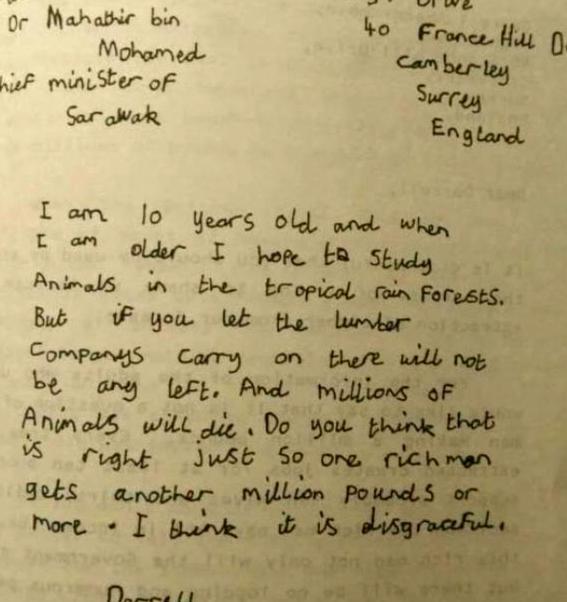 Dr Mahathir bin
Mohamed
hief minister of
Sarawak
40 France Hill D
Camberley
Surrey
England
I am 10 years old and when
I am older I hope to study
Animals in the tropical rain Forests.
But if you let the lumber
Companys carry on there will not
be any left. And millions of
Animals will die. Do you think that
is right just so one rich man
gets another million pounds or
more. I think it is disgraceful.
Darrell